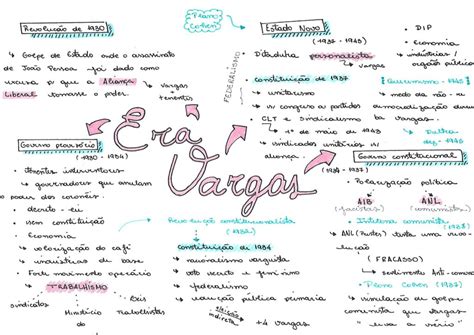 Revolução de 1930
↳ Golpe de Estado onde o assassinato
de João Pessoa foi dado como
excusa p/ que a Aliança
Liberal tomasse o poder.
↳ Vargas
+ tenentes
Plano
Cohen
FEDERALISMO
Estado Novo
(1937-1945)
Ditadura personalista
↳ Vargas
Constituição de 1937
↳ unitarismo
CLT e sindicalismo
↳ 1º de maio de 1943
↳ sindicatos unitários
• DIP
• Economia
↳ indústrias /
órgãos públicos
Queremismo - 1945
↳ medo da não-re
democratização
de Vargas.
Era
Vargas
Governo provisório
(1930-1934)
Tenentes interventores
↳ governador que anulam
o poder dos coronéis
• decreto-lei
• sem constituição
• Economia
↳ valorização do café
↳ indústrias de base
• Forte movimento operário
↳ TRABALHISMO
sindicatos
Ministério
Leis
Trabalhistas
Revolução constitucionalista
(1932)
Constituição de 1934
↳ nacionalismo varguista
↳ voto secreto e feminino
↳ federalismo
↳ educação pública primária
eleição
indireta
↳ +4 Vargas
Governo constitucional
(1934-1937)
• Polarização política
AIB
(fascistas)
ANL
(comunistas)
• Intentona comunista
(1935)
↳ ANL (Prestes) tenta uma revo
lução
(FRACASSO)
↳ sentimento Anti-comunis
• Plano Cohen (1937)
↳ simulação de golpe
comunista que Vargas
"leva a sério"